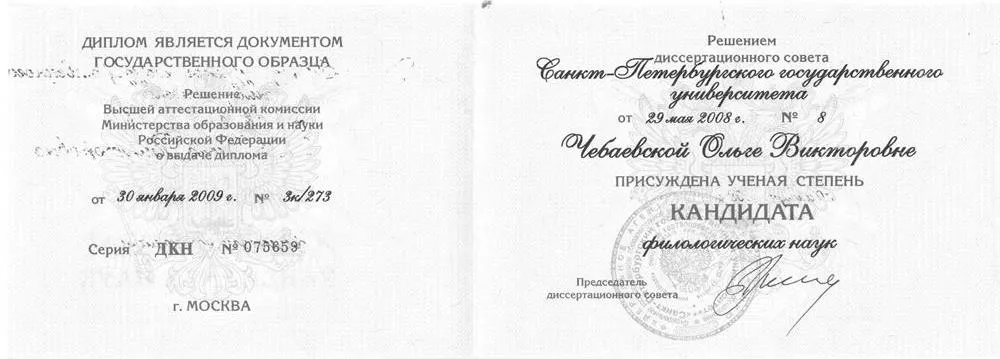 ДИПЛОМ ЯВЛЯЕТСЯ ДОКУМЕНТОМ
ГОСУДАРСТВЕННОГО ОБРАЗЦА
Решение
Высшей аттестационной комиссии
Министерства образования и науки
Российской Федерации
о выдаче диплома
от 30 января 2009 г. № 3к/273
Серия ДКН № 075659
г. МОСКВА
Решением
диссертационного совета
Санкт-Петербургского государственного
университета
от 29 мая 2008 г. № 8
Чебаевской Ольге Викторовне
ПРИСУЖДЕНА УЧЕНАЯ СТЕПЕНЬ
КАНДИДАТА
филологических наук
Председатель
диссертационного совета